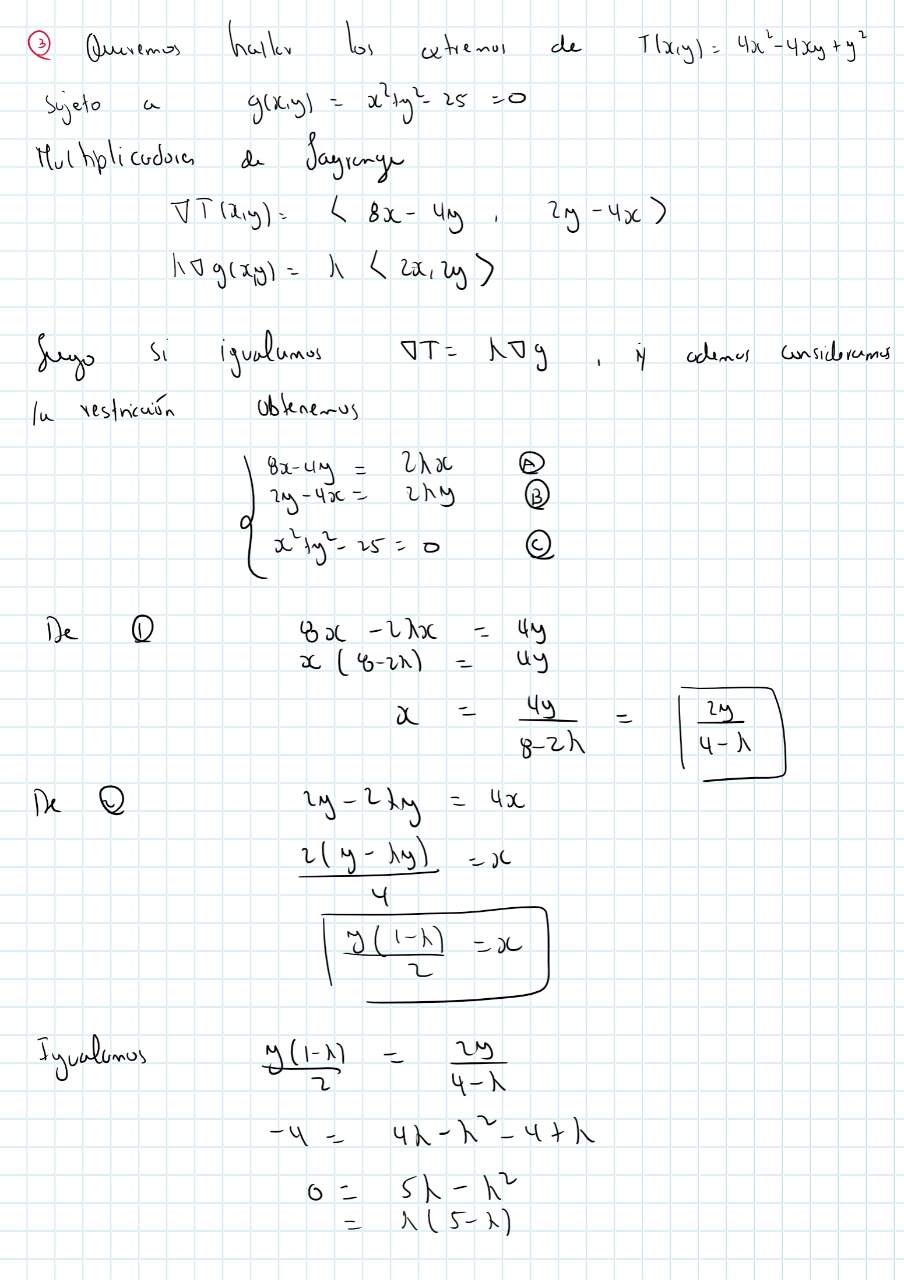 ③ Queremos hallar los extremos de T(x,y) = 4x²-4xy+y²
Sujeto a g(x,y) = x²+y²-25 = 0
Multiplicadores de Lagrange
∇T(x,y) = < 8x-4y , 2y-4x >
λ∇g(x,y) = λ < 2x, 2y >
Luego si igualamos ∇T = λ∇g , y ademas consideramos
la restricción obtenemos
8x-4y = 2λx Ⓐ
2y-4x = 2λy Ⓑ
x²+y²-25 = 0 Ⓒ
De ① 8x -2λx = 4y
x(8-2λ) = 4y
x = 4y/(8-2λ) = 2y/(4-λ)
De ② 2y-2λy = 4x
2(y-λy)/4 = x
y(1-λ)/2 = x
Igualamos y(1-λ)/2 = 2y/(4-λ)
-4 = 4λ-λ²-4+λ
0 = 5λ-λ²
= λ(5-λ)